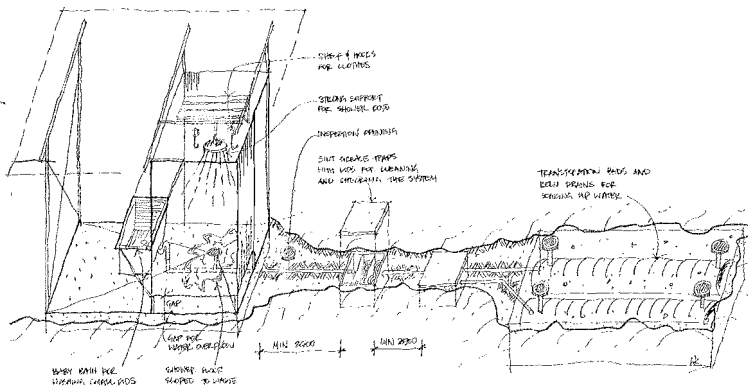 SHELF & HOOKS
FOR CLOTHES
STRONG SUPPORT
FOR SHOWER ROSE
INSPECTION OPENING
SILT GREASE TRAPS
WITH LIDS FOR CLEANING
AND CHECKING THE SYSTEM
TRANSPIRATION BEDS AND
DRAINS FOR
SOAKING UP WATER
GAP
GAP FOR
WATER OVERFLOW
MIN 2000
MIN 2000
BABY BATH FOR
WASHING SMALL KIDS
SHOWER FLOOR
SLOPED TO WASTE